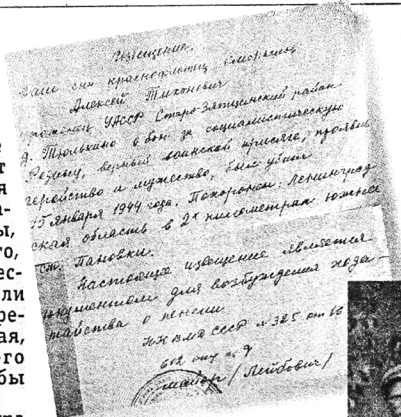 Извещение.
Ваш сын краснофлотец
Алексей Тихонович
уроженец УАССР Старо-Зятцинский район
д. Тюлькино в бою за социалистическую
Родину, верный воинской присяге, проявив
геройство и мужество, был убит
15 января 1944 года. Похоронен: Ленинград
ская область в 2х километрах южнее
ст. Пановки.
Настоящее извещение является
документом для возбуждения хода-
тайства о пенсии
НКВМФ СССР № 325 от
майор /Лейбович/
е
т
я
а-
ы,
го,
ес-
ли
ре-
ая,
его
бы